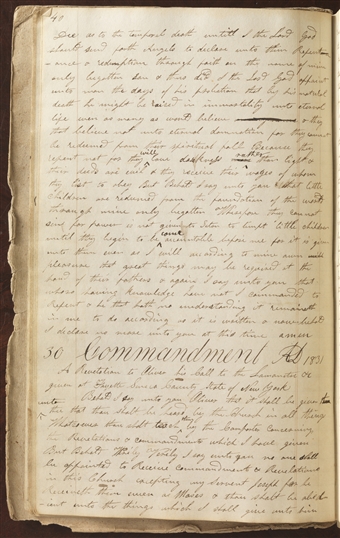 40
Die as to the temporal death untill I the Lord God
should send forth Angels to declare unto them Repentan
-ance & redemption through faith on the name of mine
only begotten Son & thus did I the Lord God appoint
unto man the days of his probation that by his natural
death he might be raised in immortality unto eternal
life even as many as would believe & they
that believe not unto eternal damnation for they cannot
be redeemed from their spiritual fall because they
repent not for they will love darkness rather than light &
their deeds are evil & they receive their wages of whom
they list to obey But Behold I say unto you that little
Children are redeemed from the foundation of the world
through mine only begotten Wherefore they cannot
sin for power is not given unto Satan to tempt little children
until they begin to become accountable before me for it is given
unto them even as I will according to mine own
pleasure that great things may be required at the
hand of their fathers & again I say unto you that
whoso having knowledge have not I commanded to
Repent & he that hath no understanding it remaineth
in me to do according as it is written & now behold
I declare no more unto you at this time amen
30 Commandment AD 1830
A Revelation to Oliver his Call to the Lamanites &c
given at Fayette Seneca County State of New York
Behold I say unto you Oliver that it shall be given unto thee
that thou shalt be heard by the Church in all things
Whatsoever thou shalt teach them by the Comforter concerning
the Revelations & commandments which I have given
But Behold Verily Verily I say unto you no one shall
be appointed to Receive commandments & Revelations
in this Church excepting my servent Joseph for he
Receiveth them even as Moses & thou shalt be obedi
-ent unto the things which I shall give unto him